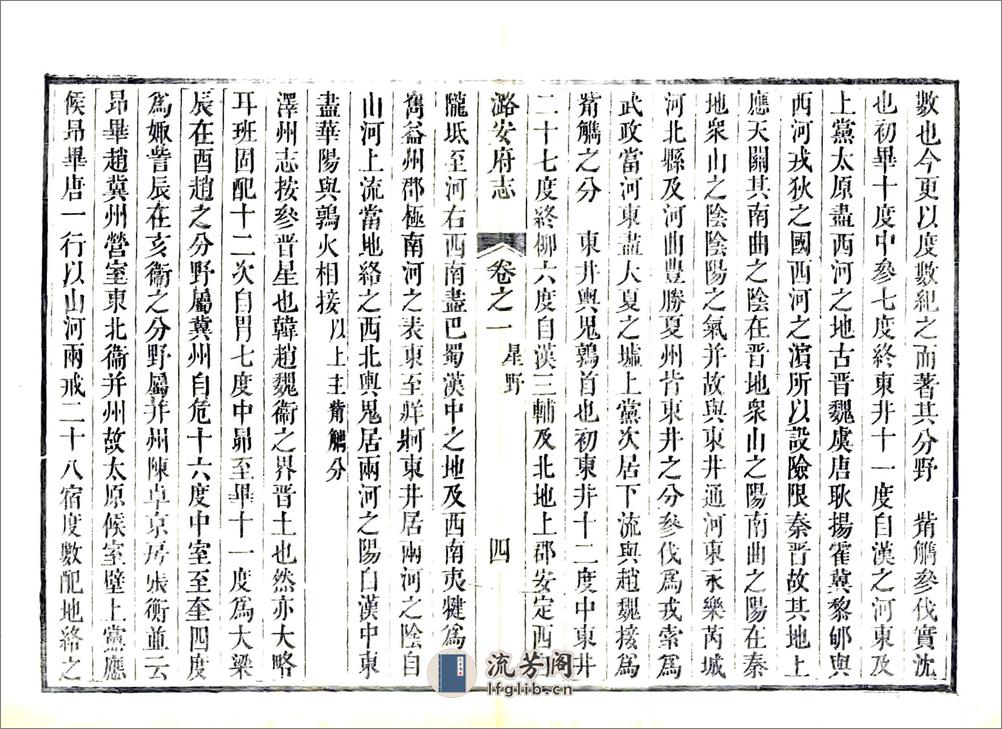 數也今更以度數紀之而著其分野 觜觿參伐實沈
也初畢十度中參七度終東井十一度自漢之河東及
上黨太原盡西河之地古晉魏虞唐耿揚霍冀黎郇與
西河戎狄之國西河之濱所以設險限秦晉故其地上
應天闕其南曲之陰在晉地衆山之陽南曲之陽在秦
地衆山之陰陰陽之氣并故與東井通河東永樂芮城
河北縣及河曲豐勝夏州皆東井之分參伐爲戎索爲
武政當河東盡大夏之墟上黨次居下流與趙魏接爲
觜觿之分 東井輿鬼鶉首也初東井十二度中東井
二十七度終柳六度自漢三輔及北地上郡安定西
潞安府志 卷之一 星野 四
隴坻至河右西南盡巴蜀漢中之地及西南夷犍爲
嶲益州郡極南河之表東至牂牁東井居兩河之陰自
山河上流當地絡之西北輿鬼居兩河之陽自漢中東
盡華陽與鶉火相接以上主觜觿分
澤州志按參晉星也韓趙魏衞之界晉土也然亦大略
耳班固配十二次自胃七度中昴至畢十一度爲大梁
辰在酉趙之分野屬冀州自危十六度中室至奎四度
爲娵訾辰在亥衞之分野屬并州陳卓京房張衡並云
昴畢趙冀州營室東北衞并州故太原候室壁上黨應
候昴畢唐一行以山河兩戒二十八宿度數配地絡之
流芳阁
lfglib.cn